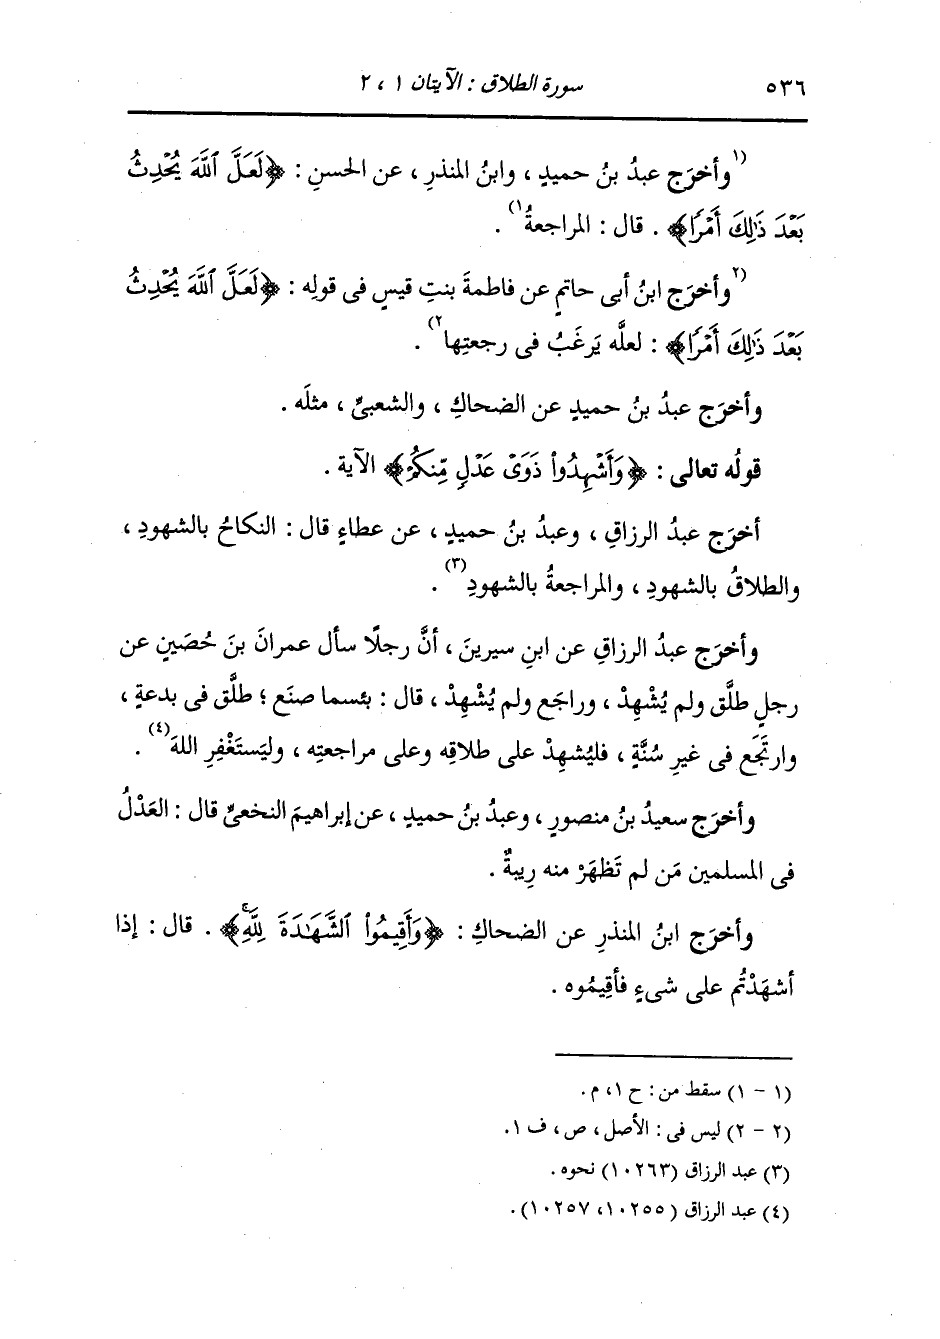 ٥٣٦
سورة الطلاق : الآيتان ١ ، ٢
(١وأخرَج عبدُ بنُ حميدٍ ، وابنُ المنذرِ ، عن الحسنِ : ﴿لَعَلَّ ٱللَّهَ يُحْدِثُ
بَعْدَ ذَٰلِكَ أَمْرًا﴾ . قال : المراجعةُ١) .
(٢وأخرَج ابنُ أبى حاتمٍ عن فاطمةَ بنتِ قيسٍ فى قولِه : ﴿لَعَلَّ ٱللَّهَ يُحْدِثُ
بَعْدَ ذَٰلِكَ أَمْرًا﴾ : لعلَّه يَرغَبُ فى رجعتِها٢) .
وأخرَج عبدُ بنُ حميدٍ عن الضحاكِ ، والشعبىِّ ، مثلَه .
قولُه تعالى : ﴿وَأَشْهِدُوا۟ ذَوَىْ عَدْلٍ مِّنكُمْ﴾ الآية .
أخرَج عبدُ الرزاقِ ، وعبدُ بنُ حميدٍ ، عن عطاءٍ قال : النكاحُ بالشهودِ ،
والطلاقُ بالشهودِ ، والمراجعةُ بالشهودِ(٣) .
وأخرَج عبدُ الرزاقِ عن ابنِ سيرينَ ، أنَّ رجلًا سأل عمرانَ بنَ حُصَينٍ عن
رجلٍ طلَّق ولم يُشْهِدْ ، وراجَع ولم يُشْهِدْ ، قال : بئسما صنَع ؛ طلَّق فى بدعةٍ ،
وارتَجَع فى غيرِ سُنَّةٍ ، فليُشهِدْ على طلاقِه وعلى مراجعتِه ، وليَستَغْفِرِ اللهَ(٤) .
وأخرَج سعيدُ بنُ منصورٍ ، وعبدُ بنُ حميدٍ ، عن إبراهيمَ النخعىِّ قال : العَدْلُ
فى المسلمين مَن لم تَظهَرْ منه رِيبةٌ .
وأخرَج ابنُ المنذرِ عن الضحاكِ : ﴿وَأَقِيمُوا۟ ٱلشَّهَـٰدَةَ لِلَّهِۚ﴾ . قال : إذا
أشهَدْتُم على شىءٍ فأقِيمُوه .
(١ - ١) سقط من : ح ١، م .
(٢ - ٢) ليس فى : الأصل ، ص ، ف ١.
(٣) عبد الرزاق (١٠٢٦٣) نحوه .
(٤) عبد الرزاق (١٠٢٥٥، ١٠٢٥٧) .